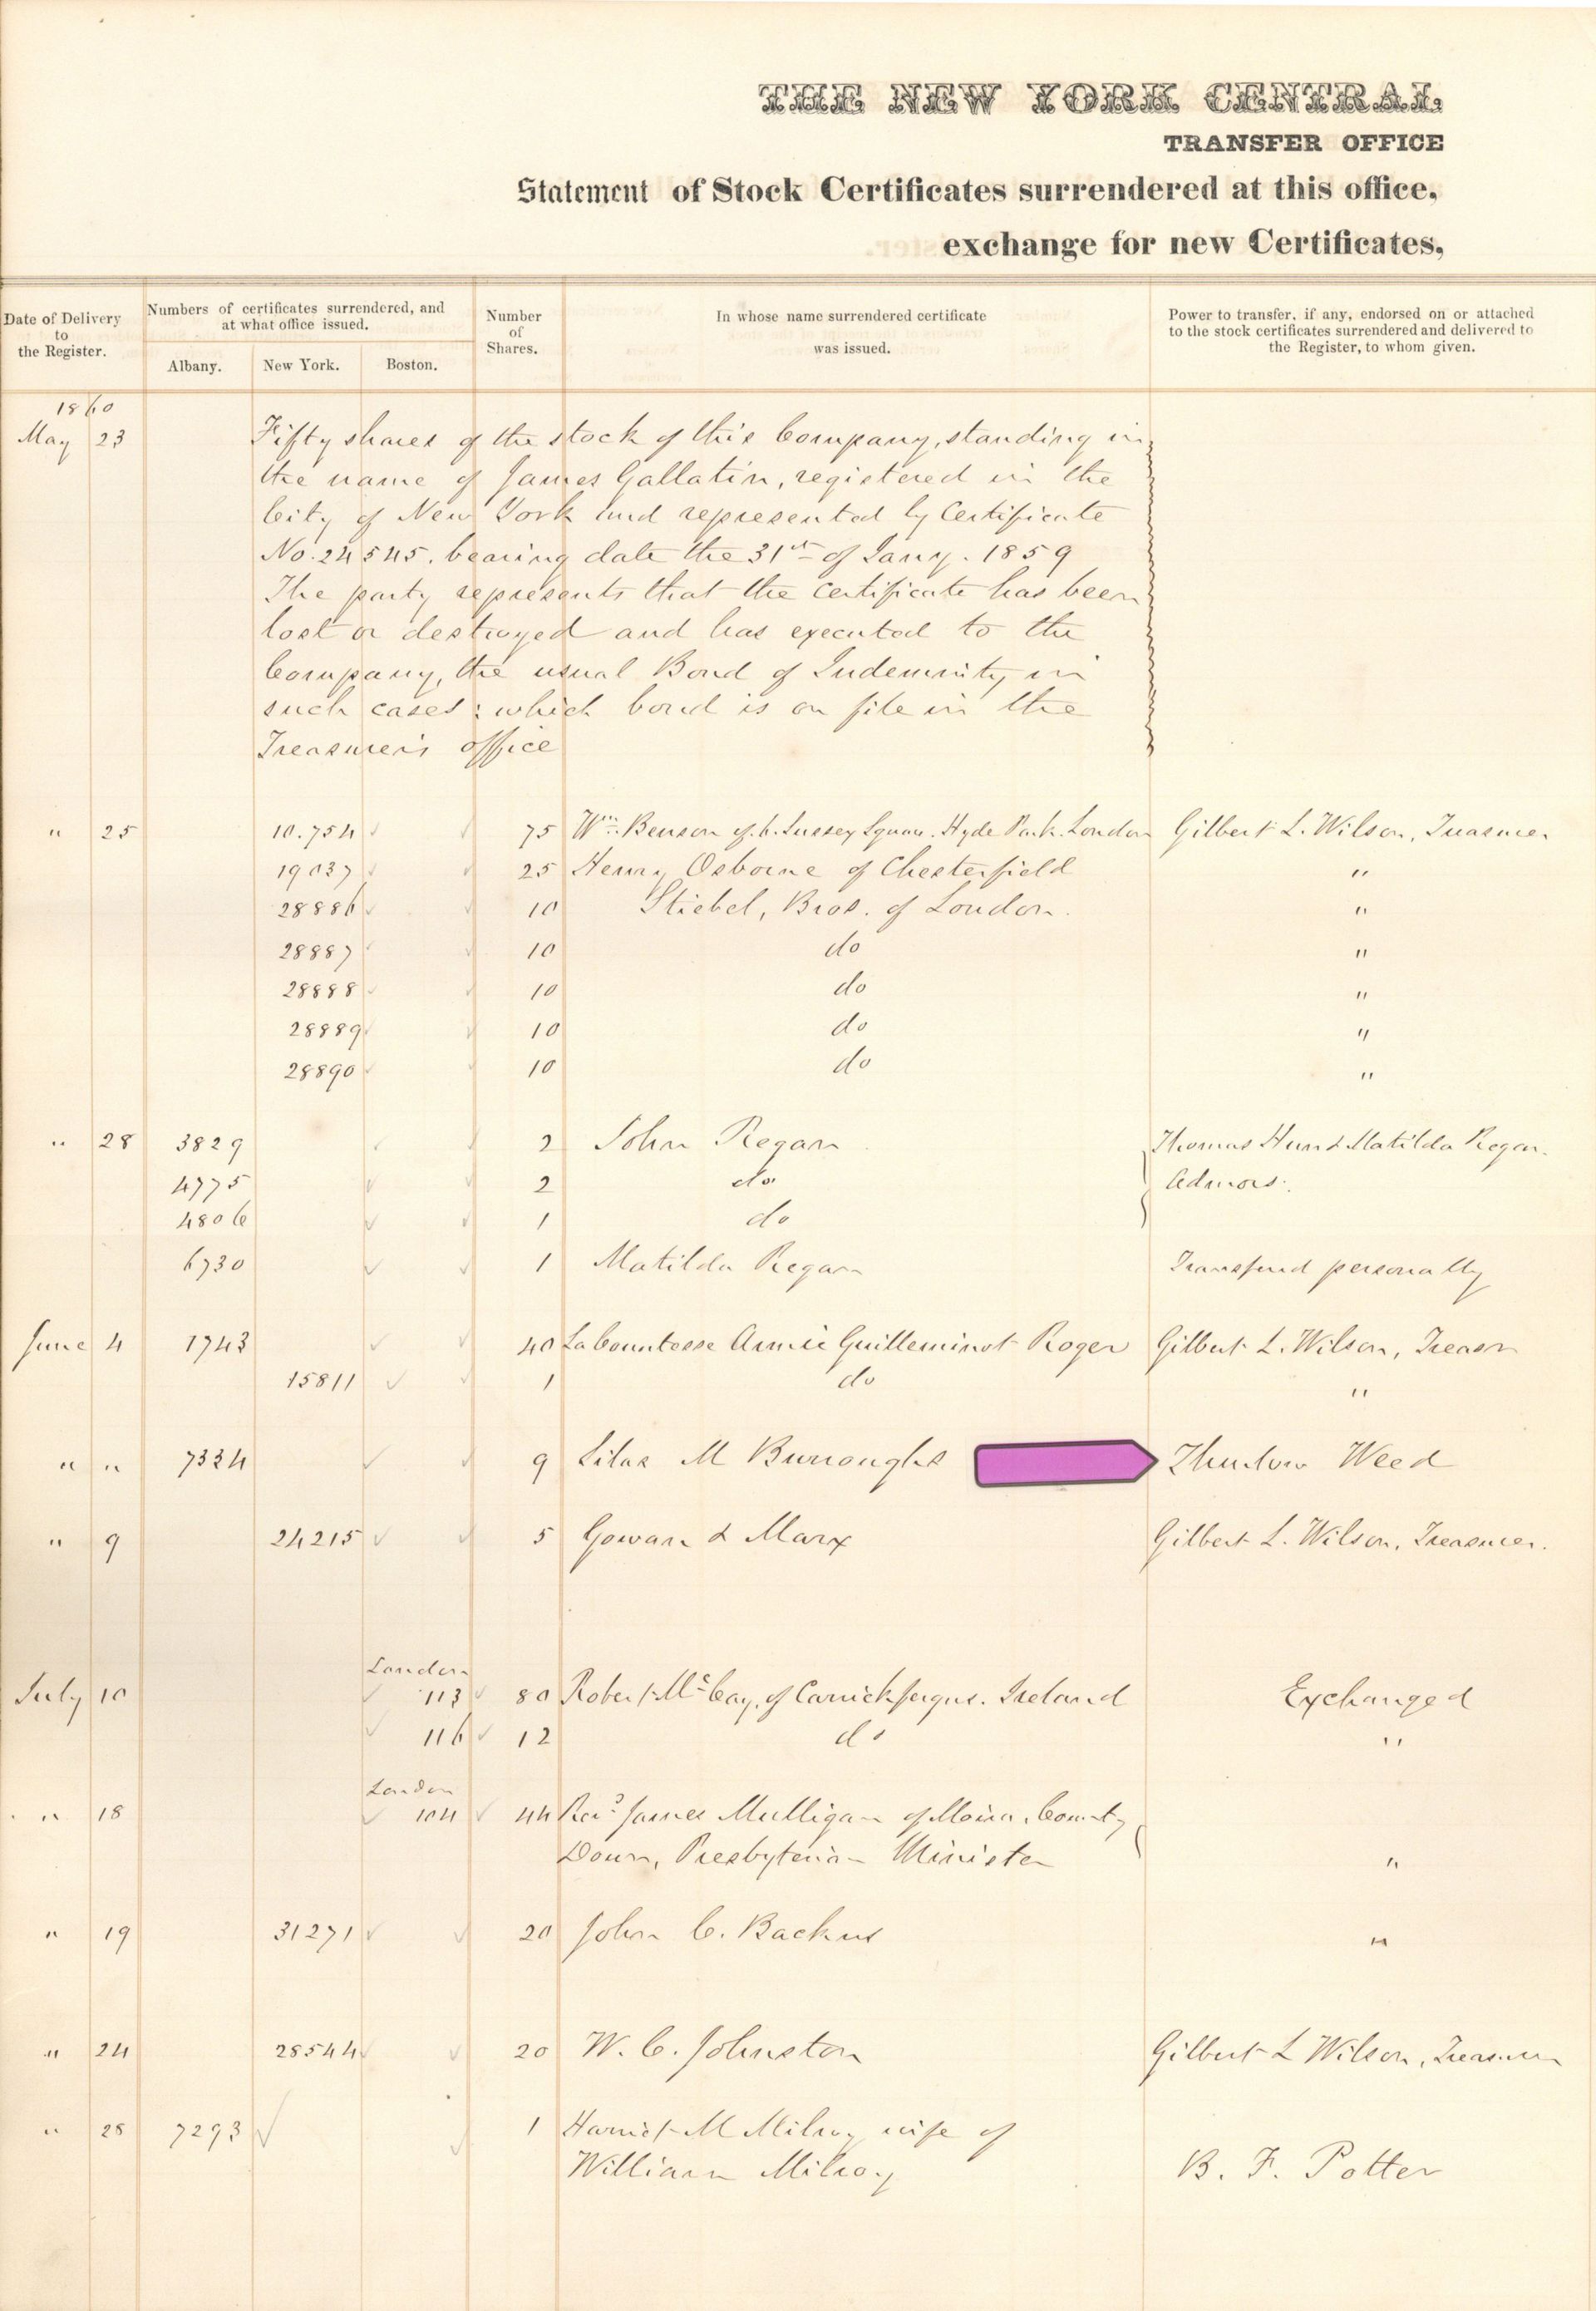 THE NEW YORK CENTRAL
TRANSFER OFFICE
Statement of Stock Certificates surrendered at this office,
exchange for new Certificates,
Date of Delivery to the Register.
Numbers of certificates surrendered, and at what office issued.
Albany. New York. Boston.
Number of Shares.
In whose name surrendered certificate was issued.
Power to transfer, if any, endorsed on or attached to the stock certificates surrendered and delivered to the Register, to whom given.
1860
May 23 Fifty shares of the stock of this Company, standing in
the name of James Gallatin, registered in the
City of New York and represented by Certificate
No. 24545. bearing date the 31st of Jany. 1859
The party represents that the certificate has been
lost or destroyed and has executed to the
Company, the usual Bond of Indemnity in
such cases: which bond is on file in the
Treasurer's office
" 25 10.754 75 Wm. Benson of 6. Sussex Square. Hyde Park. London Gilbert L. Wilson, Treasurer
19037 25 Henry Osborne of Chesterfield "
28886 10 Stiebel, Bros. of London. "
28887 10 do "
28888 10 do "
28889 10 do "
28890 10 do "
" 28 3829 2 John Regan Thomas Hun & Matilda Regan.
4775 2 do Admors.
4806 1 do
6730 1 Matilda Regan Transferd personally
June 4 1743 40 La Countesse Annie Guilleminot Roger Gilbert L. Wilson, Treasr
15811 1 do "
" " 7334 9 Silas M Burroughs Thurlow Weed
" 9 24215 5 Gowan & Marx Gilbert L. Wilson, Treasurer.
London
July 10 113 80 Robert McCay, of Carrickfergus. Ireland Exchanged
116 12 do "
London
" 18 104 44 Revd. James Mulligan of Moira, County
Down, Presbyterian Minister "
" 19 31271 20 John C. Backus "
" 24 28544 20 W. C. Johnston Gilbert L Wilson, Treasurer
" 28 7293 1 Harriet M Milroy wife of
William Milroy B. F. Potter